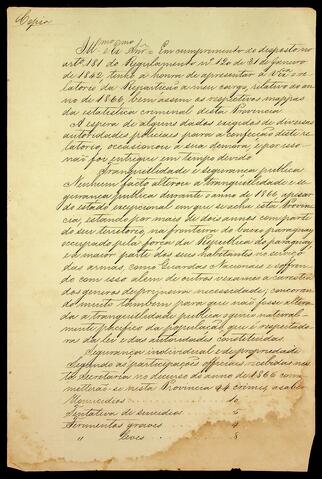 Copia
Illmo. Exmo. Snr. = Em cumprimento do disposto no
artº. 181 do Regulamento nº 120 de 31 de Janeiro
de 1842 tenho a honra de apresentar á V. Exa. o re-
latorio da Repartição a meu cargo, relativo ao an-
no de 1866, bem assim os respectivos mappas
da estatistica criminal desta Provincia
A espera de alguns dados exigidos de diversas
autoridades policiaes para a confecção deste re-
latorio, occasionou a sua demora, e por isso
não foi entregue em tempo devido
Tranquillidade e segurança publica
Nenhum facto alterou a tranquillidade e se-
gurança publica durante o anno de 1866, apesar
do estado excepcional em que se acha esta Provin-
cia, estando por mais de dois annos com parte
do seu territorio, na fronteira do baixo paraguay
occupado pela força da Republica do paraguay
e a maior parte dos seus habitantes no serviço
das armas, como Guardas Nacionaes e soffren-
do com isso alem de outros vexames a carestia
dos generos de primeira necessidade, concorren-
do muito tambem para que não fosse altera-
da a tranquillidade publica o genio natural-
mente pacifico da população que é respeitado-
ra da lei e das autoridades constituidas.
Segurança individual e de propriedade
Segundo as participações officiaes recebidas nes-
ta Secretaria no decurso do anno de 1866 com-
metterão-se nesta Provincia 44 crimes, a saber
Homicidios
Tentativa de
Ferimentos graves
" Leves 8